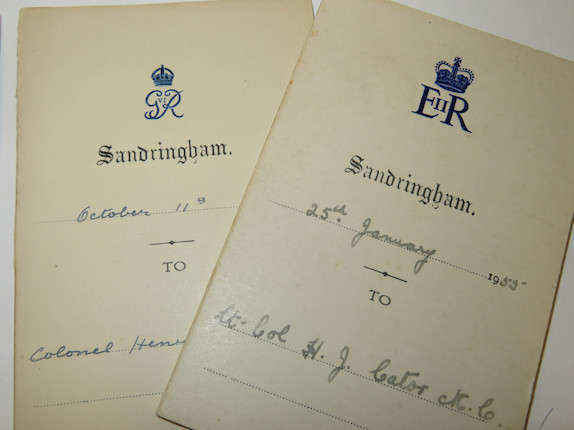 GVIR
Sandringham.
October 11th
TO
Colonel
EIIR
Sandringham.
25th January 1955
TO
Lt-Col H. J. Cator M.C.